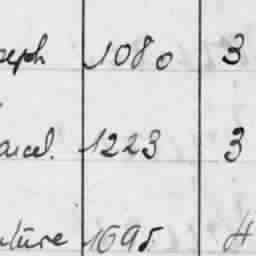 seph 1080 3
arcel. 1223 3
ature 1695 4